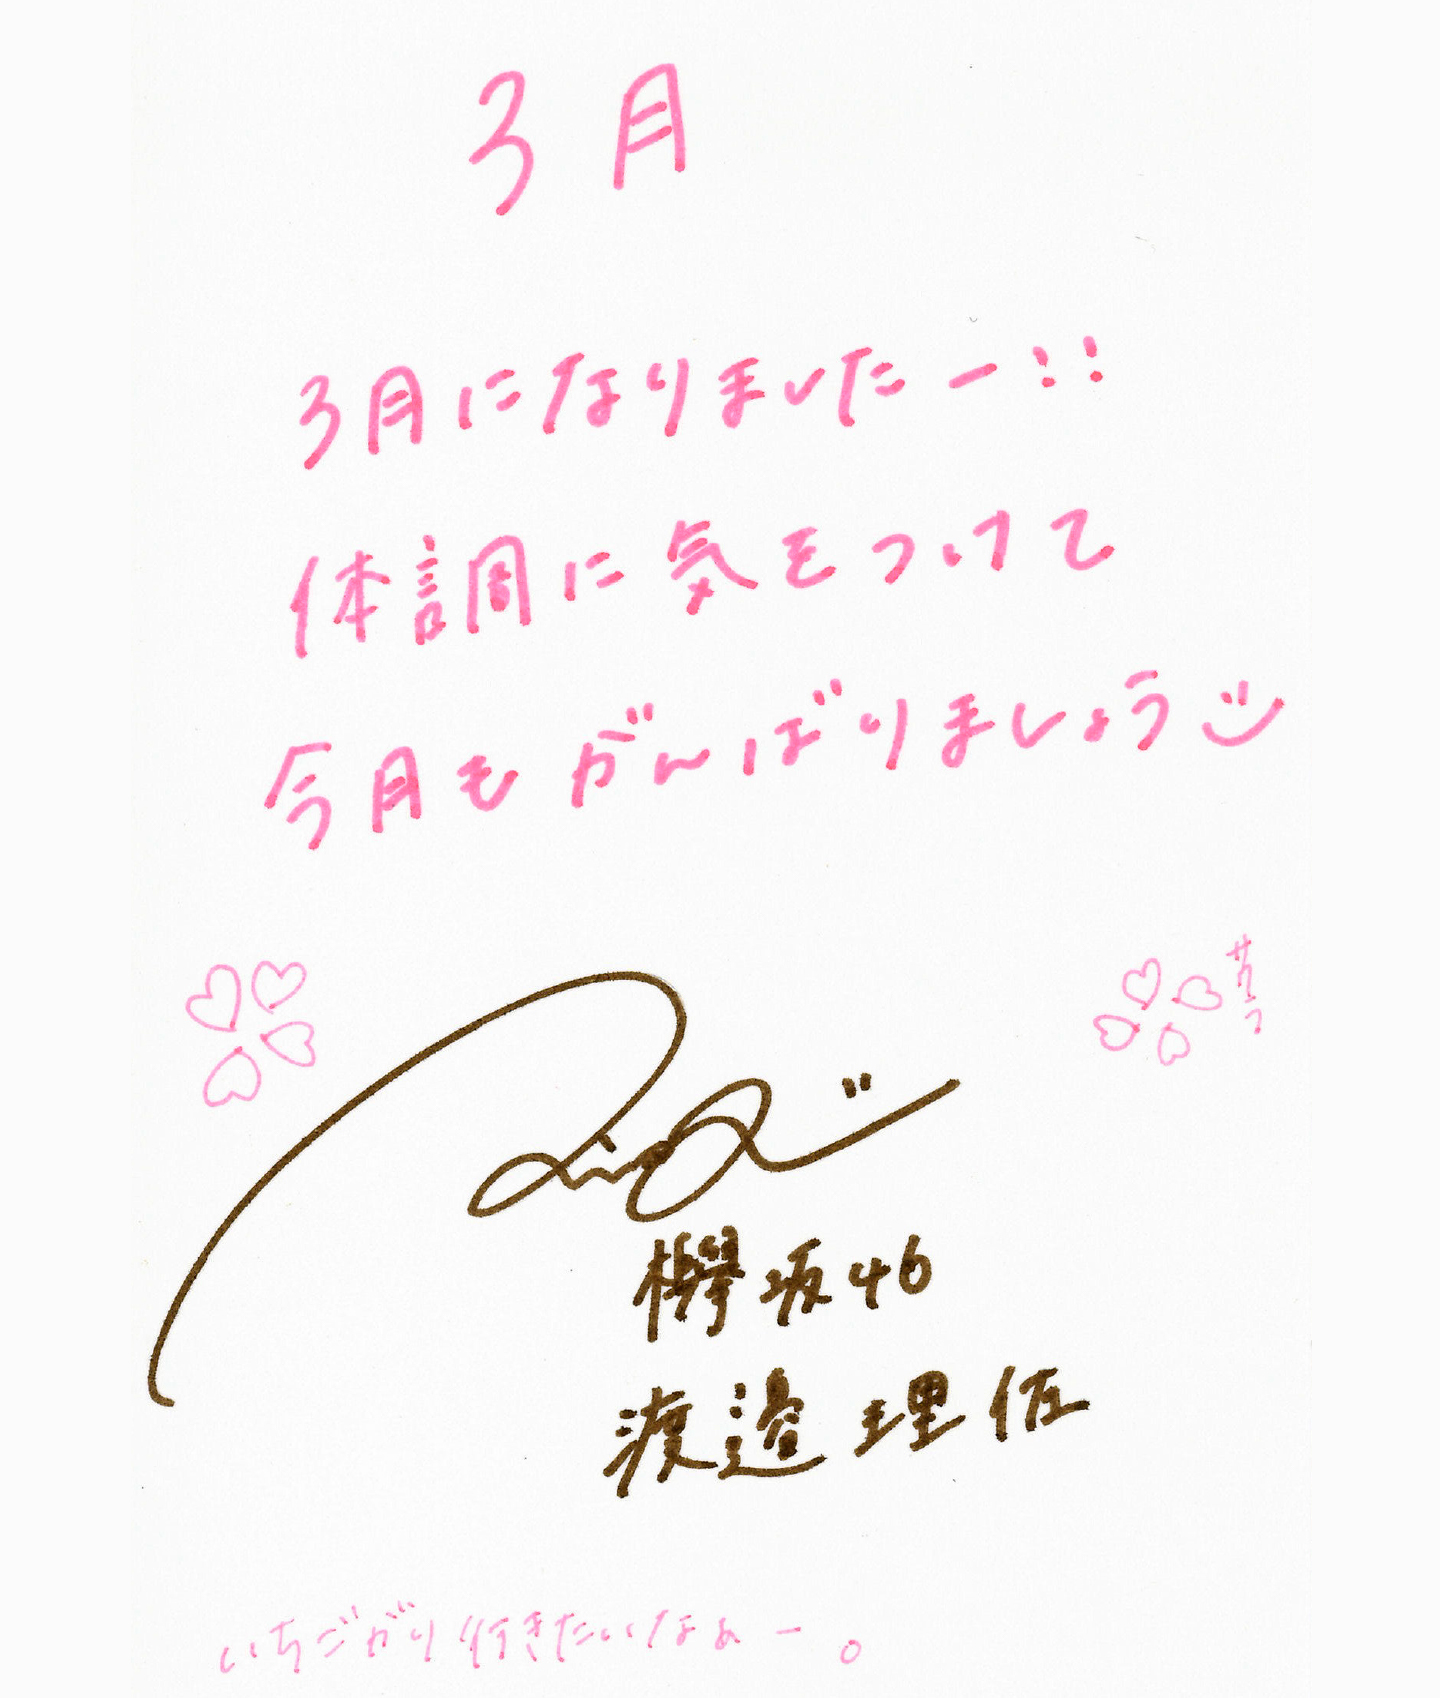 3月
3月になりましたー!!
体調に気をつけて
今月もがんばりましょう
欅坂46
渡邉理佐
いちごがり行きたいなぁー。